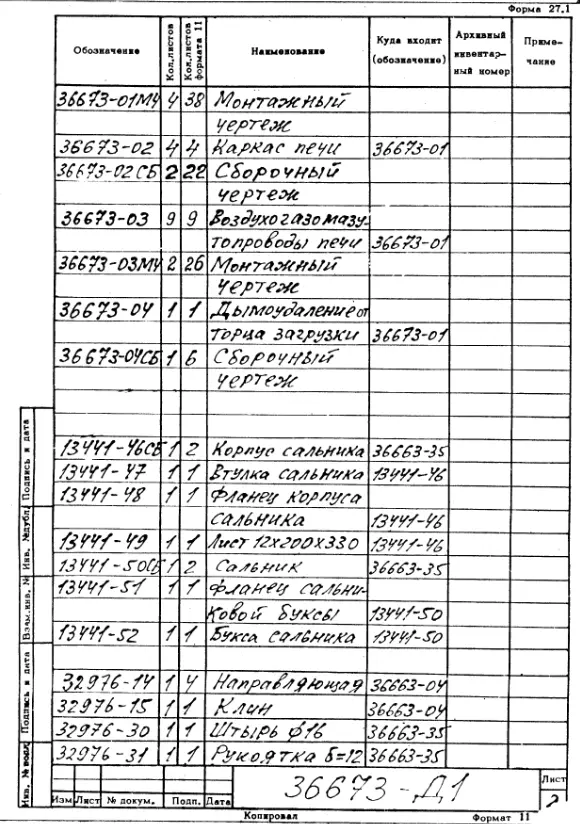 Форма 27.1
Обозначение Кол.листов Кол.листов формата 11 Наименование Куда входит (обозначение) Архивный инвентарный номер Приме-чание
36673-01МЧ 4 38 Монтажный
чертеж
36673-02 4 4 Каркас печи 36673-01
36673-02СБ 2 22 Сборочный
чертеж
36673-03 9 9 Воздухогазомазу-
топроводы печи 36673-01
36673-03МЧ 2 26 Монтажный
чертеж
36673-04 1 1 Дымоудаление от
торца загрузки 36673-01
36673-04СБ 1 6 Сборочный
чертеж
13441-46СБ 1 2 Корпус сальника 36663-35
13441-47 1 1 Втулка сальника 13441-46
13441-48 1 1 Фланец корпуса
сальника 13441-46
13441-49 1 1 Лист 12х200х330 13441-46
13441-50СБ 1 2 Сальник 36663-35
13441-51 1 1 Фланец сальни-
ковой буксы 13441-50
13441-52 1 1 Букса сальника 13441-50
32976-14 1 4 Направляющая 36663-04
32976-15 1 1 Клин 36663-04
32976-30 1 1 Штырь ф16 36663-35
32976-31 1 1 Рукоятка δ=12 36663-35
Инв. № подл. Подпись и дата Взам.инв. № Инв. №дубл. Подпись и дата
Изм Лист № докум. Подп. Дата
36673-Д1
Лист
2
Копировал Формат 11